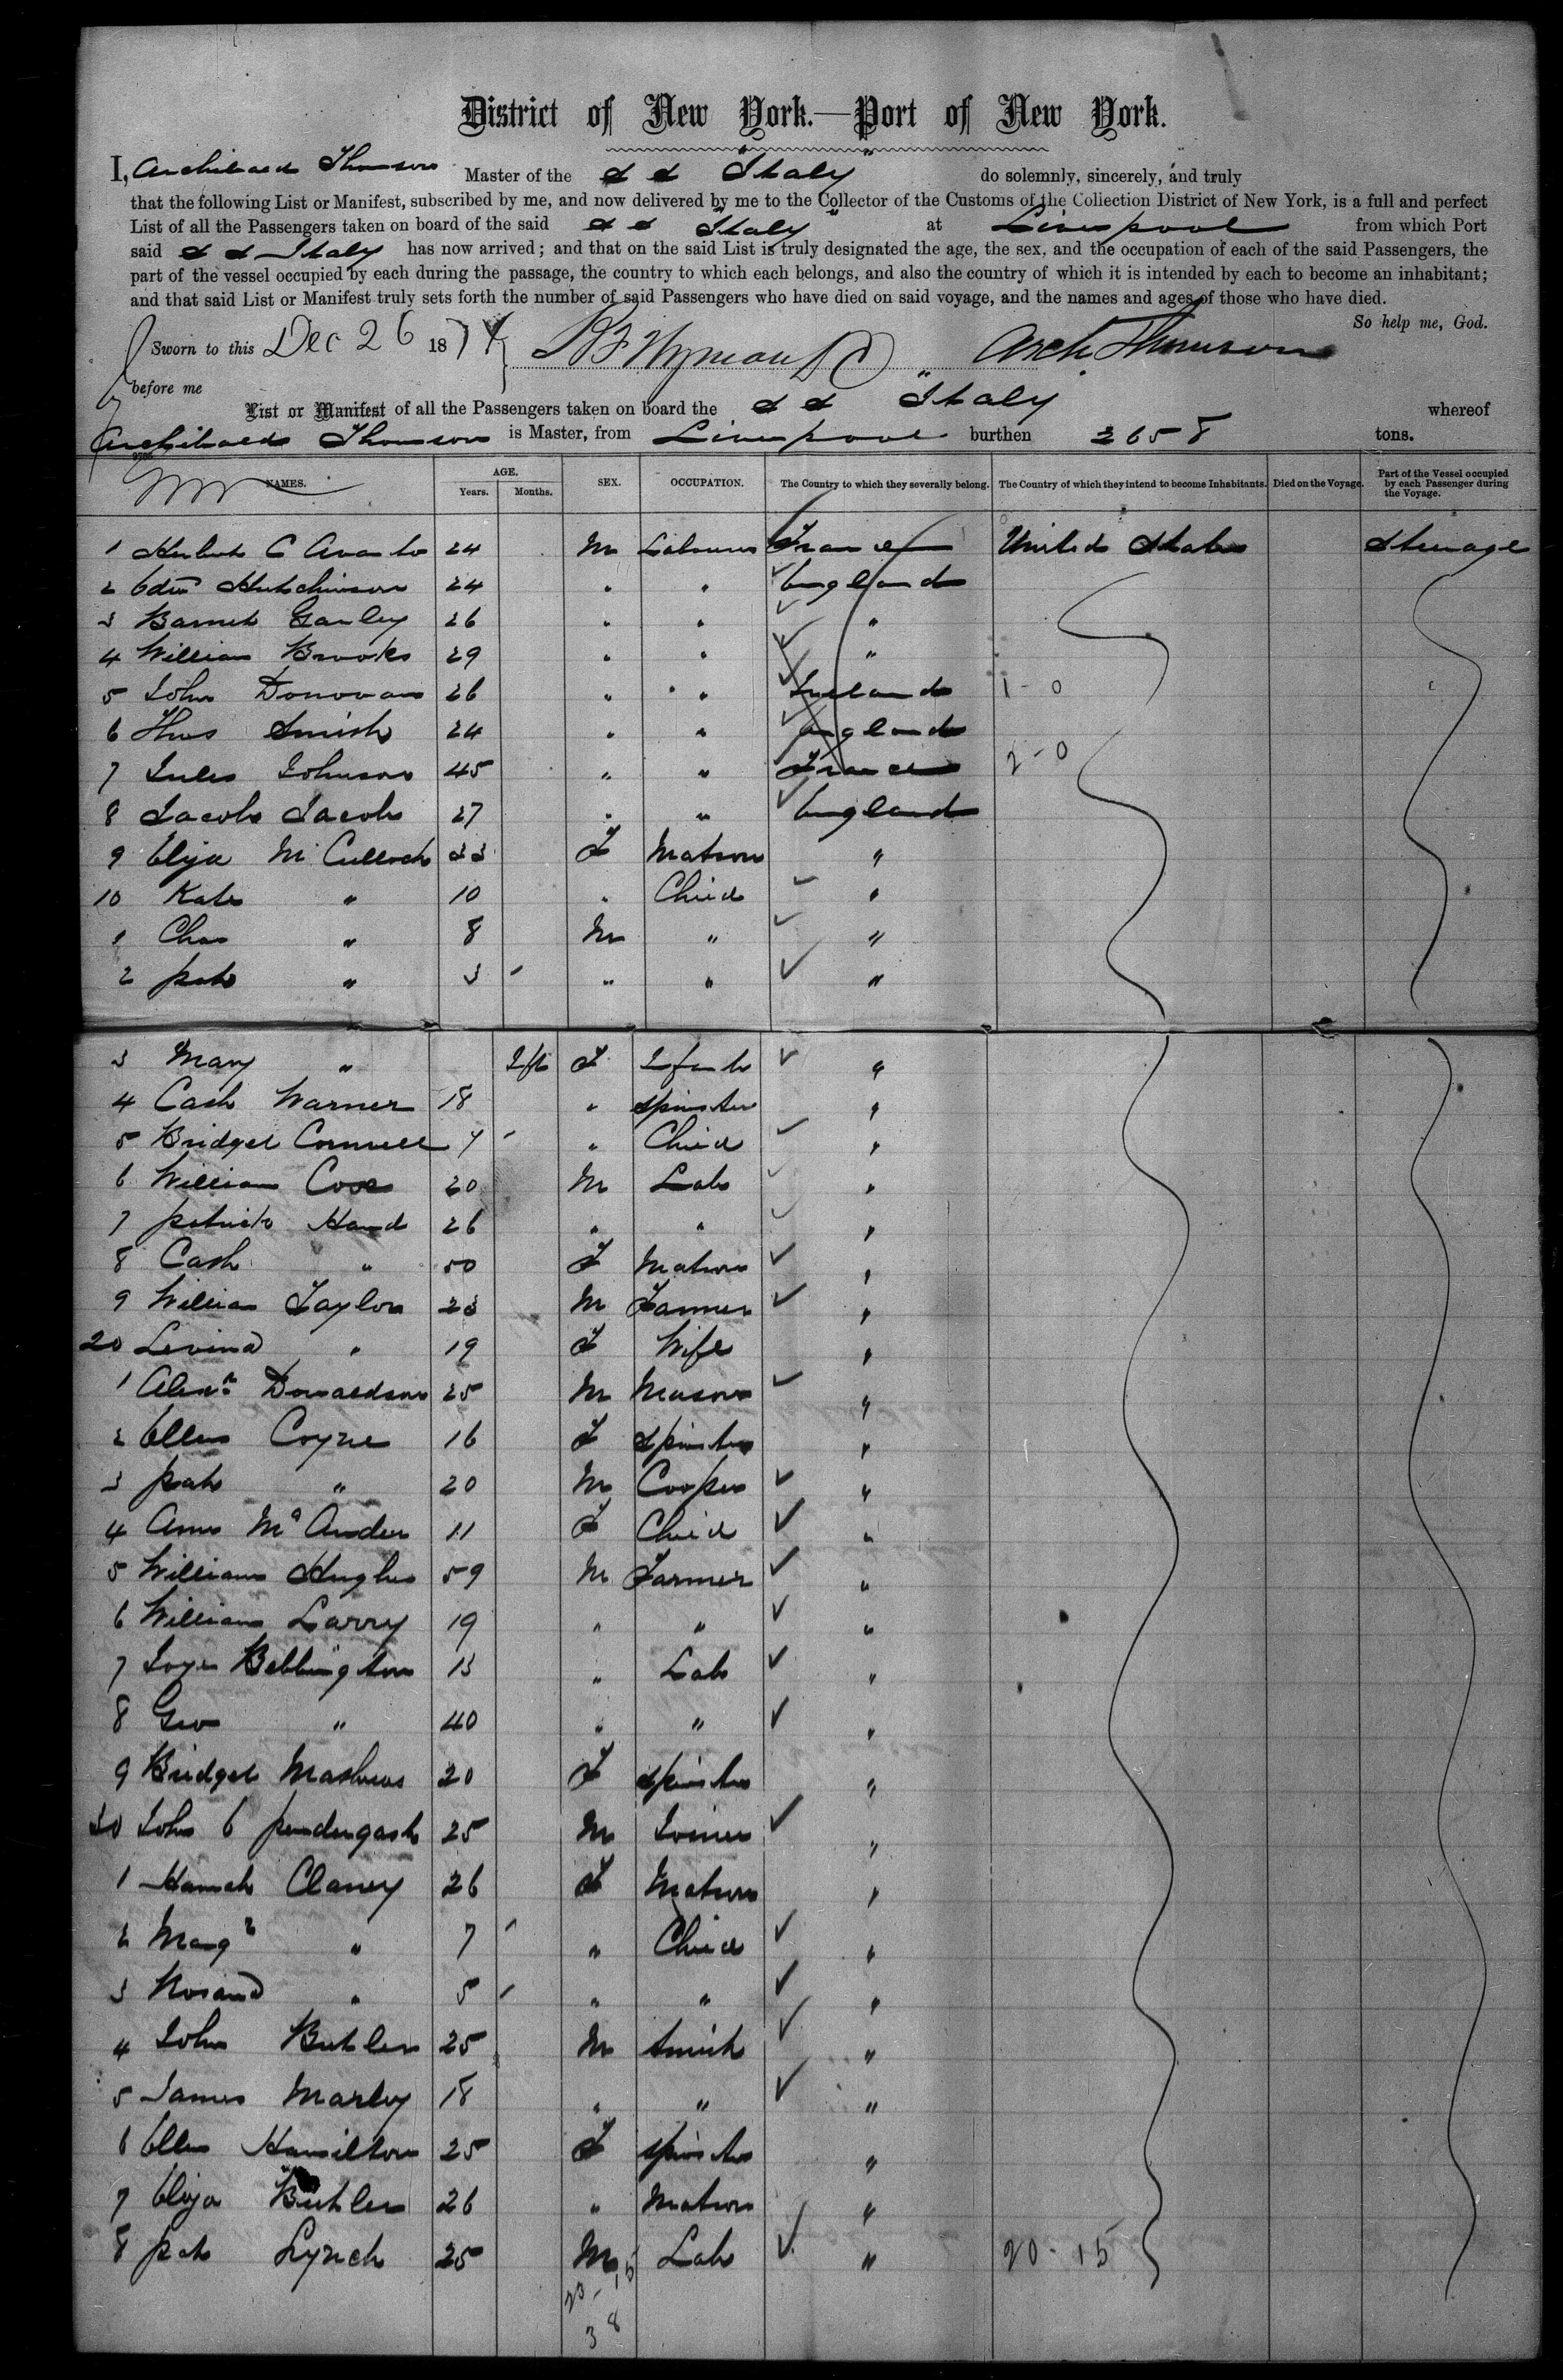 District of New York.—Port of New York.
I, Archibald Thomson Master of the S S "Italy" do solemnly, sincerely, and truly
that the following List or Manifest, subscribed by me, and now delivered by me to the Collector of the Customs of the Collection District of New York, is a full and perfect
List of all the Passengers taken on board of the said S S "Italy" at Liverpool from which Port
said S S Italy has now arrived; and that on the said List is truly designated the age, the sex, and the occupation of each of the said Passengers, the
part of the vessel occupied by each during the passage, the country to which each belongs, and also the country of which it is intended by each to become an inhabitant;
and that said List or Manifest truly sets forth the number of said Passengers who have died on said voyage, and the names and ages of those who have died.
So help me, God.
Sworn to this Dec 26 1874 Arch. Thomson
before me
List or Manifest of all the Passengers taken on board the S S "Italy whereof
Archibald Thomson is Master, from Liverpool burthen 2658 tons.
NAMES. AGE. Years. Months. SEX. OCCUPATION. The Country to which they severally belong. The Country of which they intend to become Inhabitants. Died on the Voyage. Part of the Vessel occupied by each Passenger during the Voyage.
1 24 M Labourer France United States Steerage
2 Edwd Hutchinson 24 " " England
3 Barnet Ganley 26 " " "
4 William Brooks 29 " " "
5 John Donovan 26 " " Ireland 1-0
6 Thos Smith 24 " " England
7 Jules Johnson 45 " " France 2-0
8 Jacob Jacobs 27 " " England
9 Eliza McCulloch 33 F Matron "
10 Kate " 10 " Child "
1 Chas " 8 M " "
2 Pat " 3 " " "
3 Mary " Inft F Infant "
4 Cath Warner 18 " Spinster "
5 Bridget 7 " Child "
6 William 20 M Lab "
7 Patrick Hand 26 " " "
8 Cath " 50 F Matron "
9 William Taylor 23 M Farmer "
20 Levina " 19 F Wife "
1 Alexr Donaldson 25 M Mason "
2 Ellen Coyne 16 F Spinster "
3 Pat " 20 M Cooper "
4 Ann 11 F Child "
5 William Hughes 59 M Farmer "
6 William Larry 19 " " "
7 Bebbington 13 " Lab "
8 Geo " 40 " " "
9 Bridget Mathews 20 F Spinster "
30 John E Pendergast 25 M Joiner "
1 Hannah Clancy 26 F Matron "
2 Margt " 7 " Child "
3 Rosanna " 5 " " "
4 John Butler 25 M Smith "
5 James Marley 18 " " "
6 Ellen Hamilton 25 F Spinster "
7 Eliza Butler 26 " Matron "
8 Pat Lynch 25 M Lab " 20-15
23-15
38